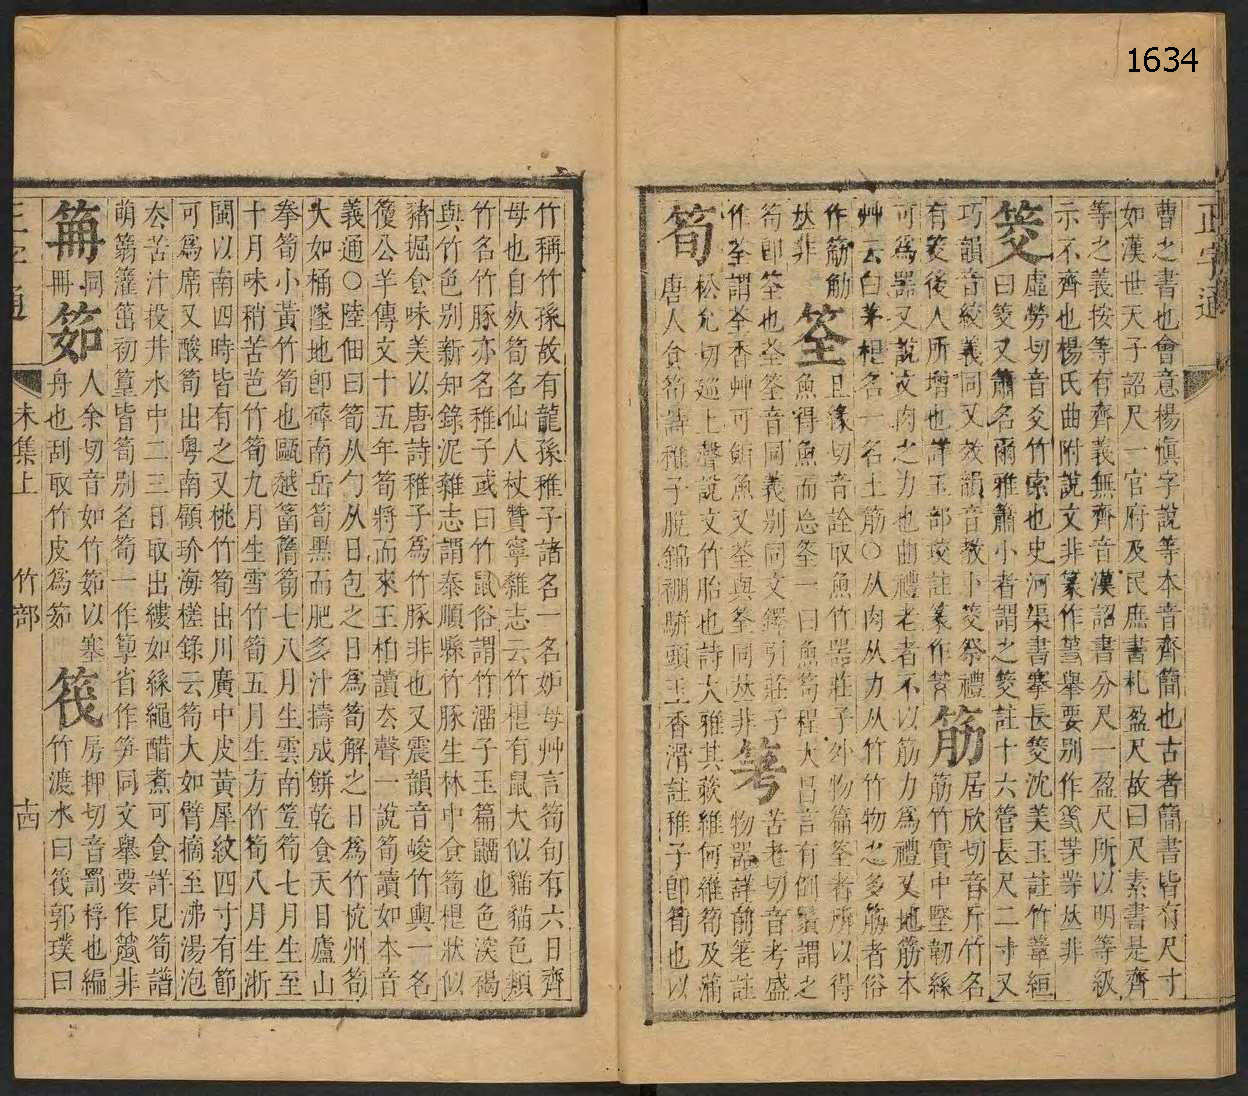 1634
正字通
曹之書也會意楊愼字說等本音齊簡也古者簡書皆有尺寸
如漢世天子詔尺一官府及民庶書札盈尺故曰尺素書是齊
等之義按等有齊義無齊音漢詔書分尺一盈尺所以明等級
示不齊也楊氏曲附說文非篆作舉要別作等等𠀤非
筊虛勞切音爻竹索也史河渠書搴長筊沈美玉註竹葦絙
曰筊又簫名爾雅簫小者謂之筊註十六管長尺二寸又
巧韻音絞義同又效韻音敎卜筊祭禮筋居欣切音斤竹名
有筊後人所增也詳玉部珓註篆作筋竹實中堅韌絲
可爲器又說文肉之力也曲禮老者不以筋力爲禮又地筋本
艸云白茅根名一名土筋○从肉从力从竹竹物之多筋者俗
作筋觔筌且緣切音詮取魚竹器莊子外物篇筌者所以得
𠀤非魚得魚而忘筌一曰魚笱程大昌言有倒鬚謂之
笱卽筌也荃筌音同義別同文鐸引莊子筹苦老切音考盛
作荃謂荃香艸可餌魚又荃與筌同𠀤非物器詳前䇢註
筍松允切巡上聲說文竹胎也詩大雅其蔌維何維筍及蒲
唐人食筍詩稚子脫錦棚駢頭玉香滑註稚子卽筍也以
竹稱竹孫故有龍孫稚子諸名一名妒母艸言筍旬有六日齊
母也自𠀤筍名仙人杖贊寧雜志云竹根有鼠大似貓貓色類
竹名竹豚亦名稚子或曰竹鼠俗謂竹㺠子玉篇鼺也色淡褐
與竹色別新知錄泥雜志謂泰順縣竹豚生林中食筍根狀似
豬掘食味美以唐詩稚子爲竹豚非也又震韻音峻竹輿一名
篗公羊傳文十五年筍將而來王柏讀去聲一說筍讀如本音
義通○陸佃曰筍从勹从日包之日爲筍解之日爲竹杭州筍
大如桶墜地卽碎南岳筍黑而肥多汁擣成餠乾食天目廬山
拳筍小黃竹筍也甌越䈽䉮筍七八月生雲南筀筍七月生至
十月味稍苦芭竹筍九月生雪竹筍五月生方竹筍八月生浙
閩以南四時皆有之又桃竹筍出川廣中皮黃犀紋四寸有節
可爲席又酸筍出粤南顧玠海槎錄云筍大如臂摘至沸湯泡
去苦汁投井水中二三日取出縷如絲繩醋煮可食詳見筍譜
萌篛䉞䈚初篁皆筍別名筍一作箰省作笋同文舉要作䈞非
䈑同筎人余切音如竹筎以塞筏房押切音罰桴也編
冊舟也刮取竹皮爲筎竹渡水曰筏郭璞曰
正字通
未集上
竹部
十四